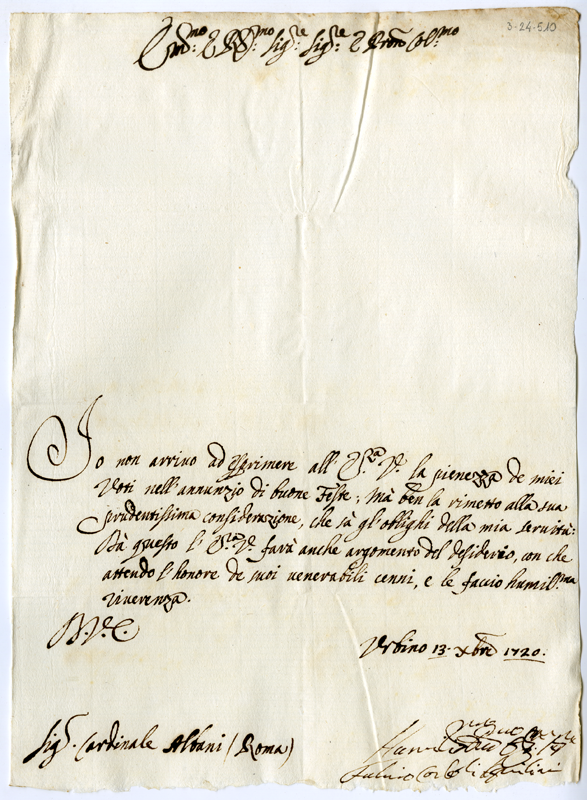 3-24-510
Em:mo e Rev:mo Sig:re Sig:re e Pron Col:mo
Io non arrivo ad esprimere all' E.za V. la pienezza de miei
Voti nell'annunzio di buone Feste; mà ben la rimetto alla sua
prudentissima considerazione, che sà gl'oblighi della mia servitù:
Dà questo l' E.za V. farà anche argomento del desiderio, con che
attendo l'honore de suoi venerabili cenni, e le faccio humil.ma
riverenza.
Urbino 13. Xbre 1720.
Sig.r Cardinale Albani (Roma)